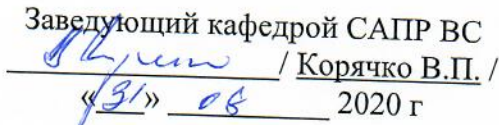 Заведующий кафедрой САПР ВС
/ Корячко В.П. /
«31» 08 2020 г